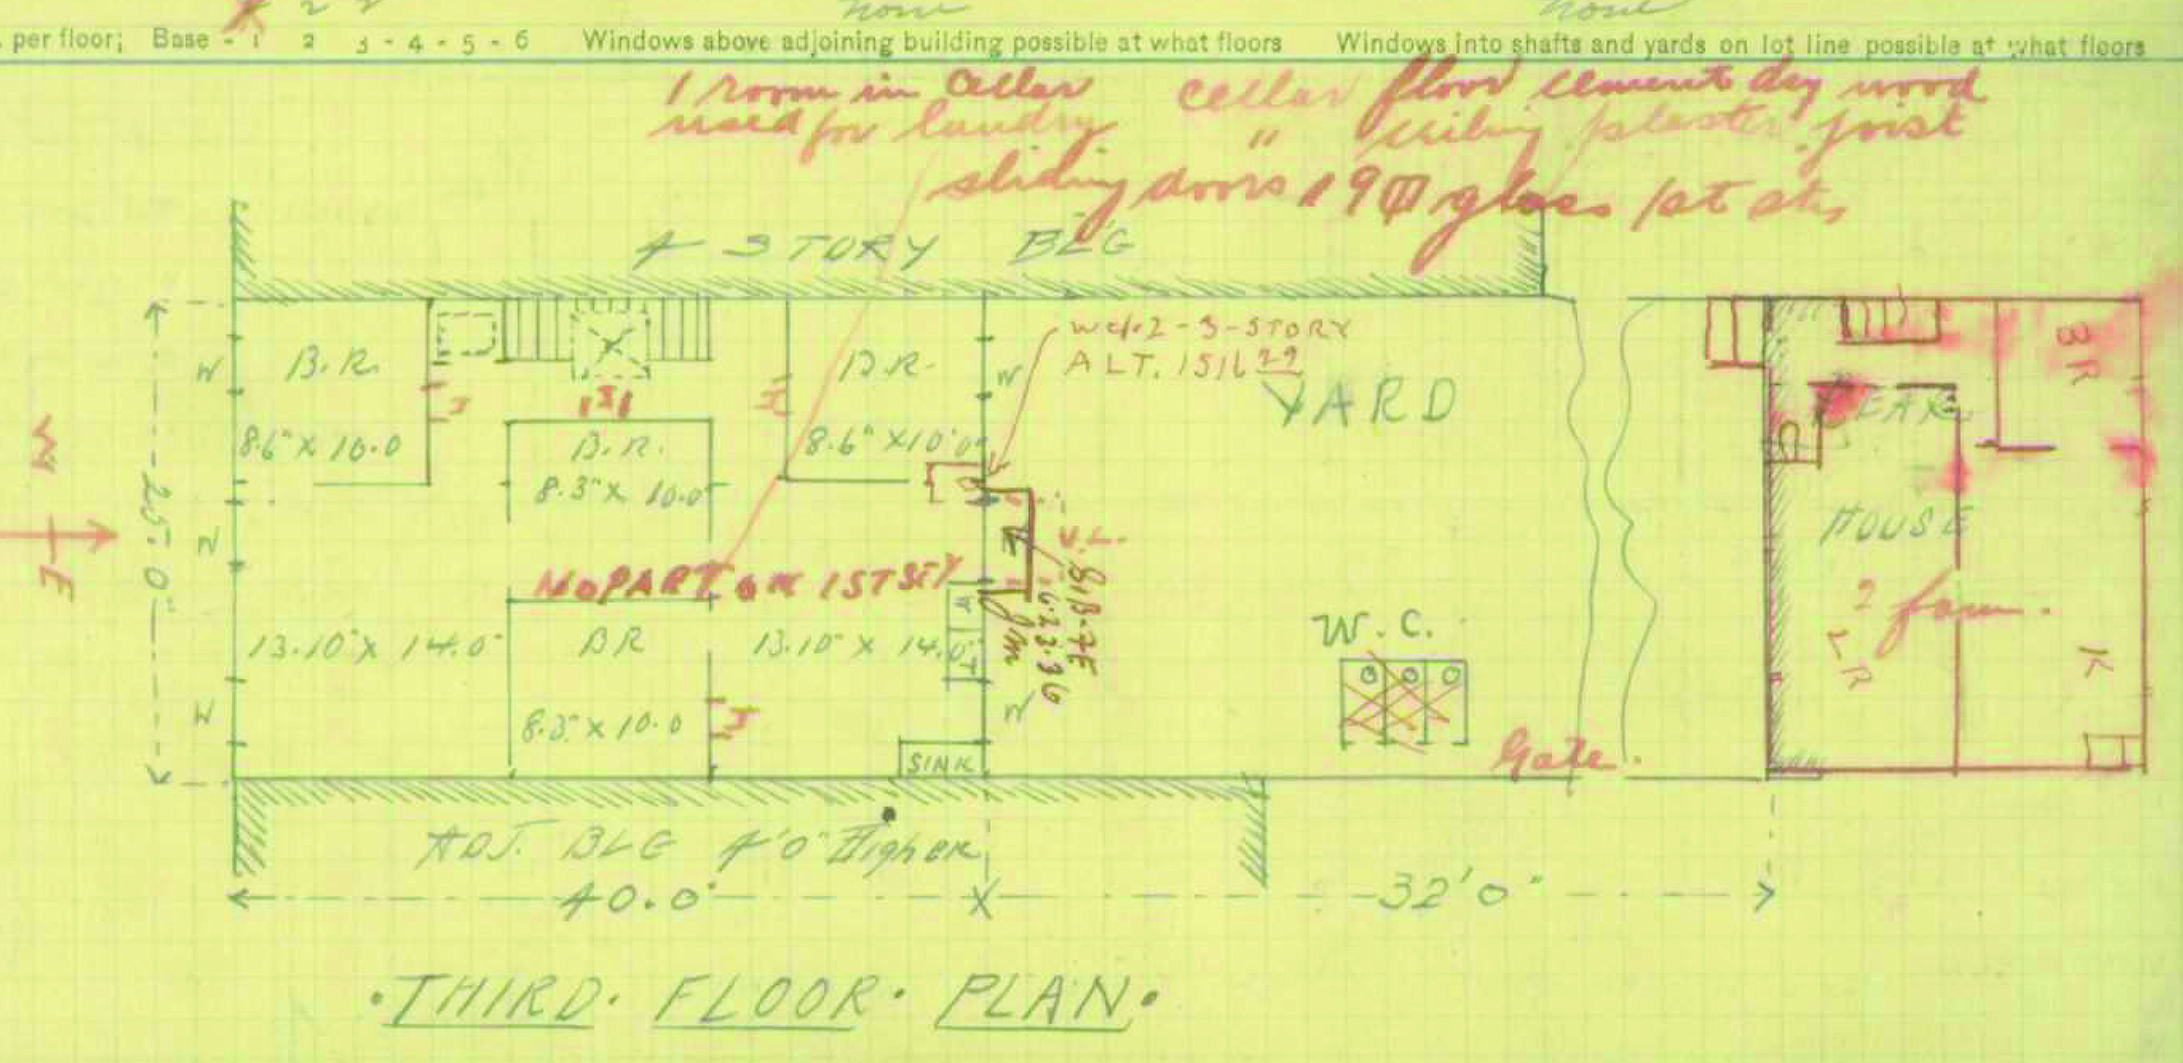 2 2
none
none
per floor; Base - 1 2 3 - 4 - 5 - 6 Windows above adjoining building possible at what floors Windows into shafts and yards on lot line possible at what floors
1 room in cellar
used for laundry
cellar floor cement dry wood
" ceiling plaster joist
sliding doors glass 1st sty
4 STORY BLG
W.C. 2-3-STORY
ALT. 1516 29
YARD
B.R.
8.6" X 10.0
B.R.
8.3" X 10.0
8.6" X 10'0
W
W
W
W
W
25'.0"
W
E
NO PART ON 1ST STY
V.L.
6-23-36
13.10" X 14.0"
BR
8.3" X 10.0
13.10" X 14.0"
W
T
SINK
W.C.
Gate
BR
REAR
HOUSE
2 fam.
LR
K
ADJ. BLG 4'0" Higher
40.0"
32'0"
THIRD. FLOOR. PLAN.